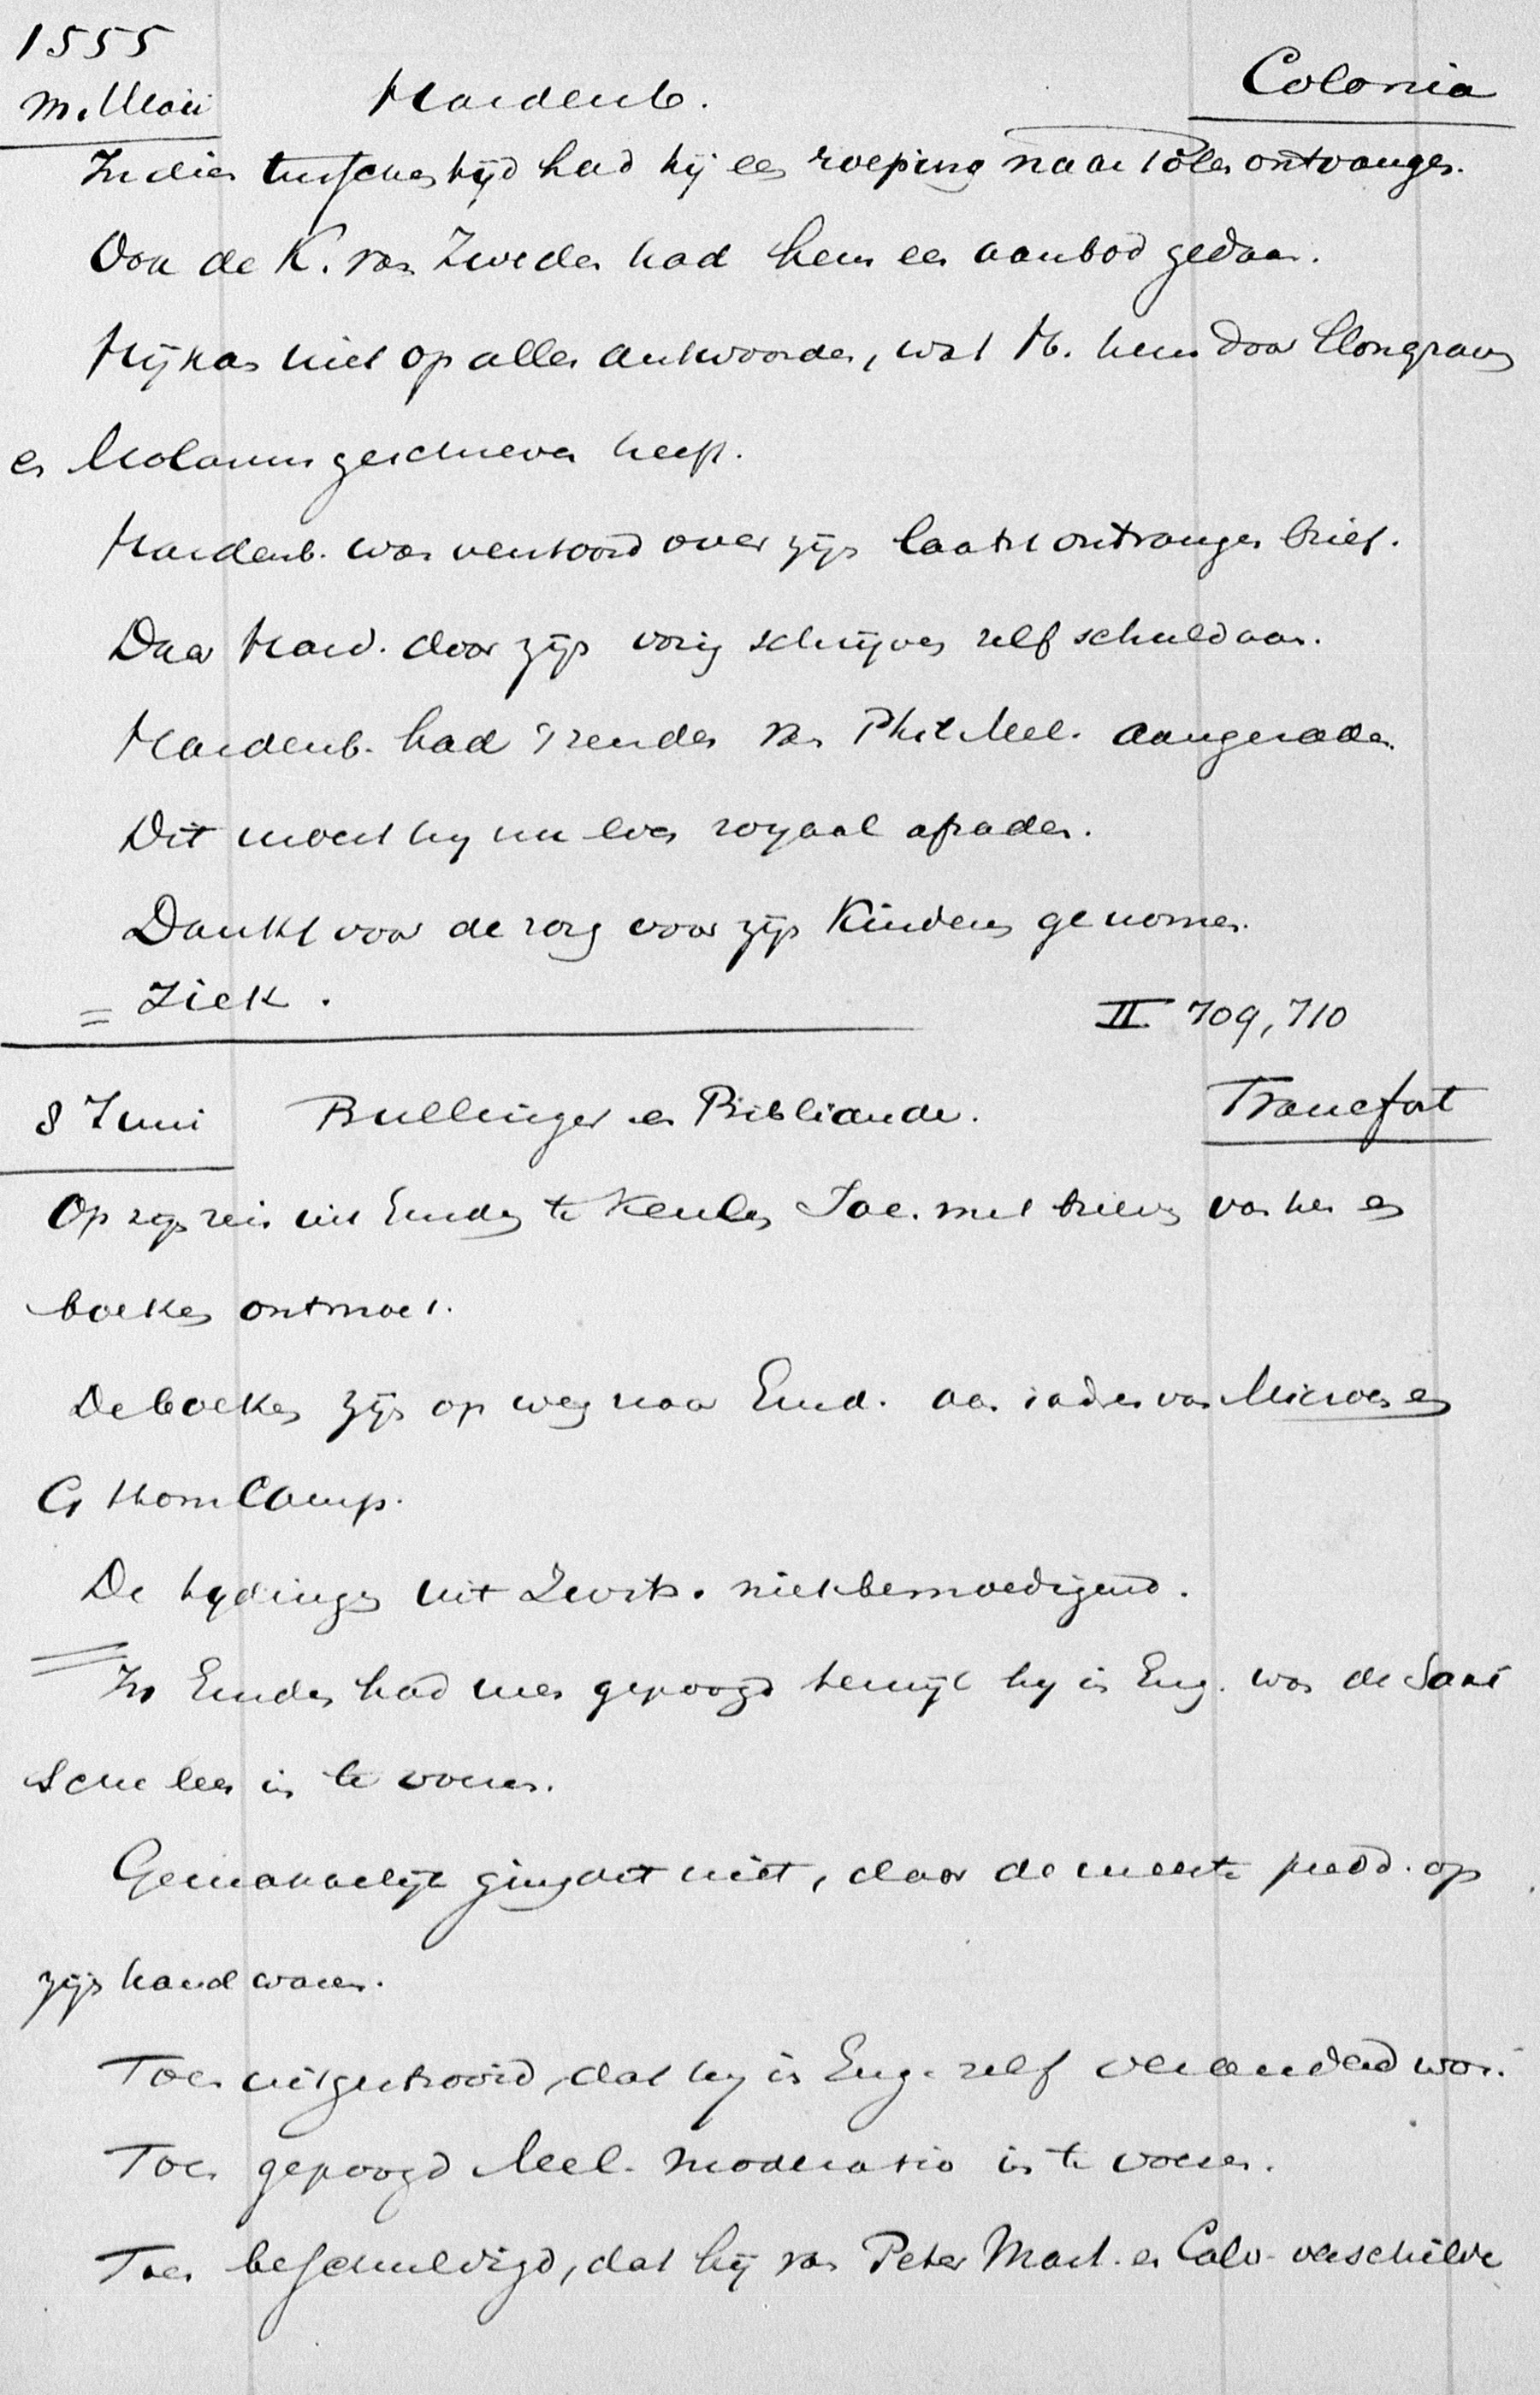 1555
m. Maii Hardenb. Colonia
In dien tusschentijd had hij een roeping naar Polen ontvangen.
Ook de K. van Zweden had hem een aanbod gedaan.
Hij kan niet op alles antwoorden, wat H. hem door
en Molanus geschreven heeft.
Hardenb. was verstoord over zijn laatst ontvangen brief.
Daar Hard. door zijn vorig schrijven zelf schuld aan.
Hardenb. had 't zenden van Phil. Mel. aangeraden.
Dit moest hij nu even royaal afraden.
Dankt voor de zorg voor zijn Kinderen genomen.
= Ziek. II 709, 710
8 Juni Bullinger en Bibliander. Francfort
Op zijn reis uit Emden te Keulen Joe. met brieven van hen en
boeken ontmoet.
De boeken zijn op weg naar Emd. aan van Micron en
G thom Camp.
De tijdingen uit Zwits. niet bemoedigend.
= In Emden had men gepoogd terwijl hij in Eng. was de Sax
sche leer in te voeren.
Gemakkelijk ging dit niet, daar de meeste predd. op
zijn hand waren.
Toen uitgestrooid, dat hij in Eng. zelf veranderd was.
Toen gepoogd Mel. moderatio in te voeren.
Toen beschuldigd, dat hij van Peter Mart. en Calv. verschilde